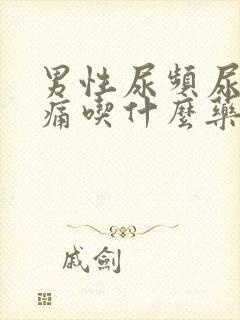 男性尿頻尿
痛喫什麼藥
戚劍